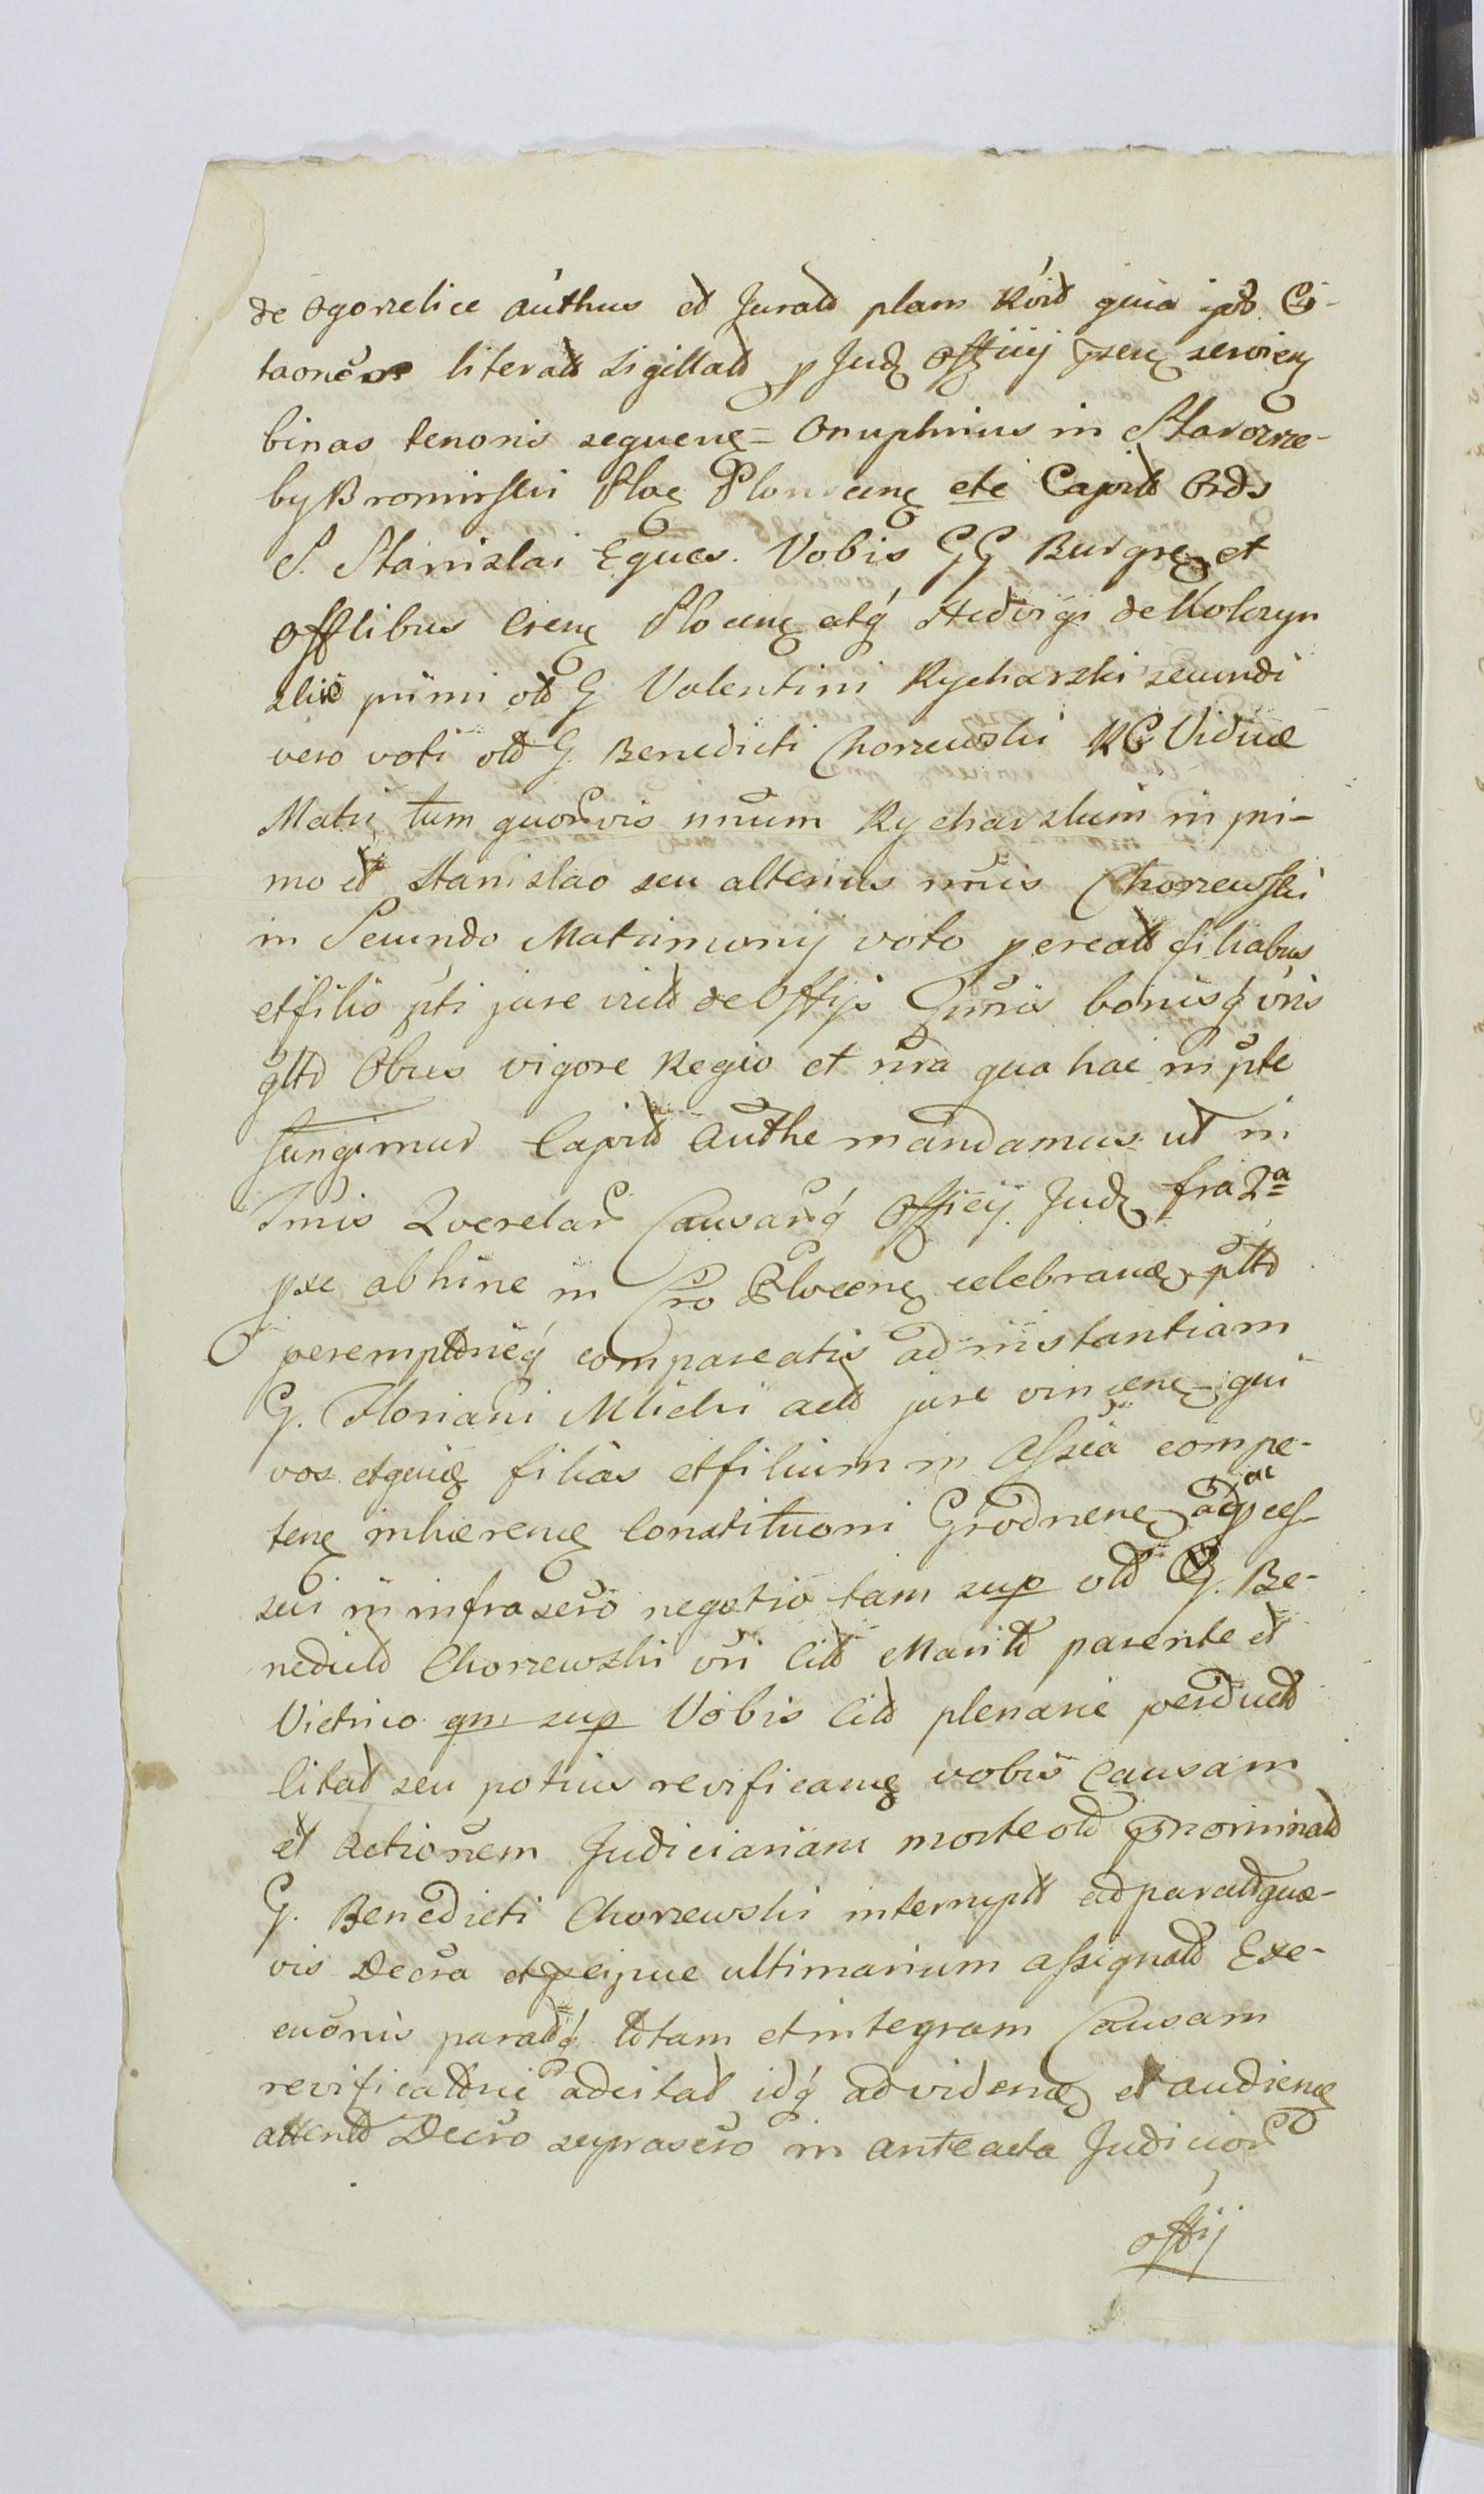 de Ogorzelice Authus et Jurat plam Rcit quia ipd Ci-
taones literat sigillat p Judz Offiiij psen servien
binas tenoris sequen = Onuphrius in Starorze-
by Bromirski Ploc Plonscen etc Capit Ords
S. Stanislai Eques. Vobis GG Burgre et
Offlibus Cren Plocen atq Hedvigi de Kolczyn
skie primi olt G Valentini Rycharski secundi
vero voti olt G. Benedicti Chorzewski RC Viduæ
Matri tum quorvis nnum Rycharskim in pri-
mo et Stanislao seu alterius nnis Chorzewski
in Secundo Matrimonij voto pereatt filiabus
et filio pti jure vrit de Offijs Gnris bonisq vris
gltt Obus vigore Regio et nra qua hac in pte
fungimur Capit Authe mandamus ut in
Tmis Querelar Causarq Officij Judz fra 2a
pxe abhinc in Cro Plocen celebran pltt
peremptrieq compareatis ad instantiam
G. Floriani Mlicki act jure vincen qui
vos etquæ filias et filium in Assia compe-
ten inhæren Constituoni Grodnen ac adpces-
sui in infrascro negotio tam sup olt G. Be-
nedict Chorzewski vri Citt Marit parente et
Victrico qm sup Vobis Citt plenarie perduct
litat seu potius revificang vobis Causam
et actionem Judiciariam morte olt pnominat
G. Benedicti Chorzewski interrupt ad paratquæ-
vis Decra et pcipue ultimarium assignatt Exe-
cuonis paratq totam et integram Causam
revificattrie adcitat idq ad viden et audien
attent Decro suprascro in anteacta Judicior
offij